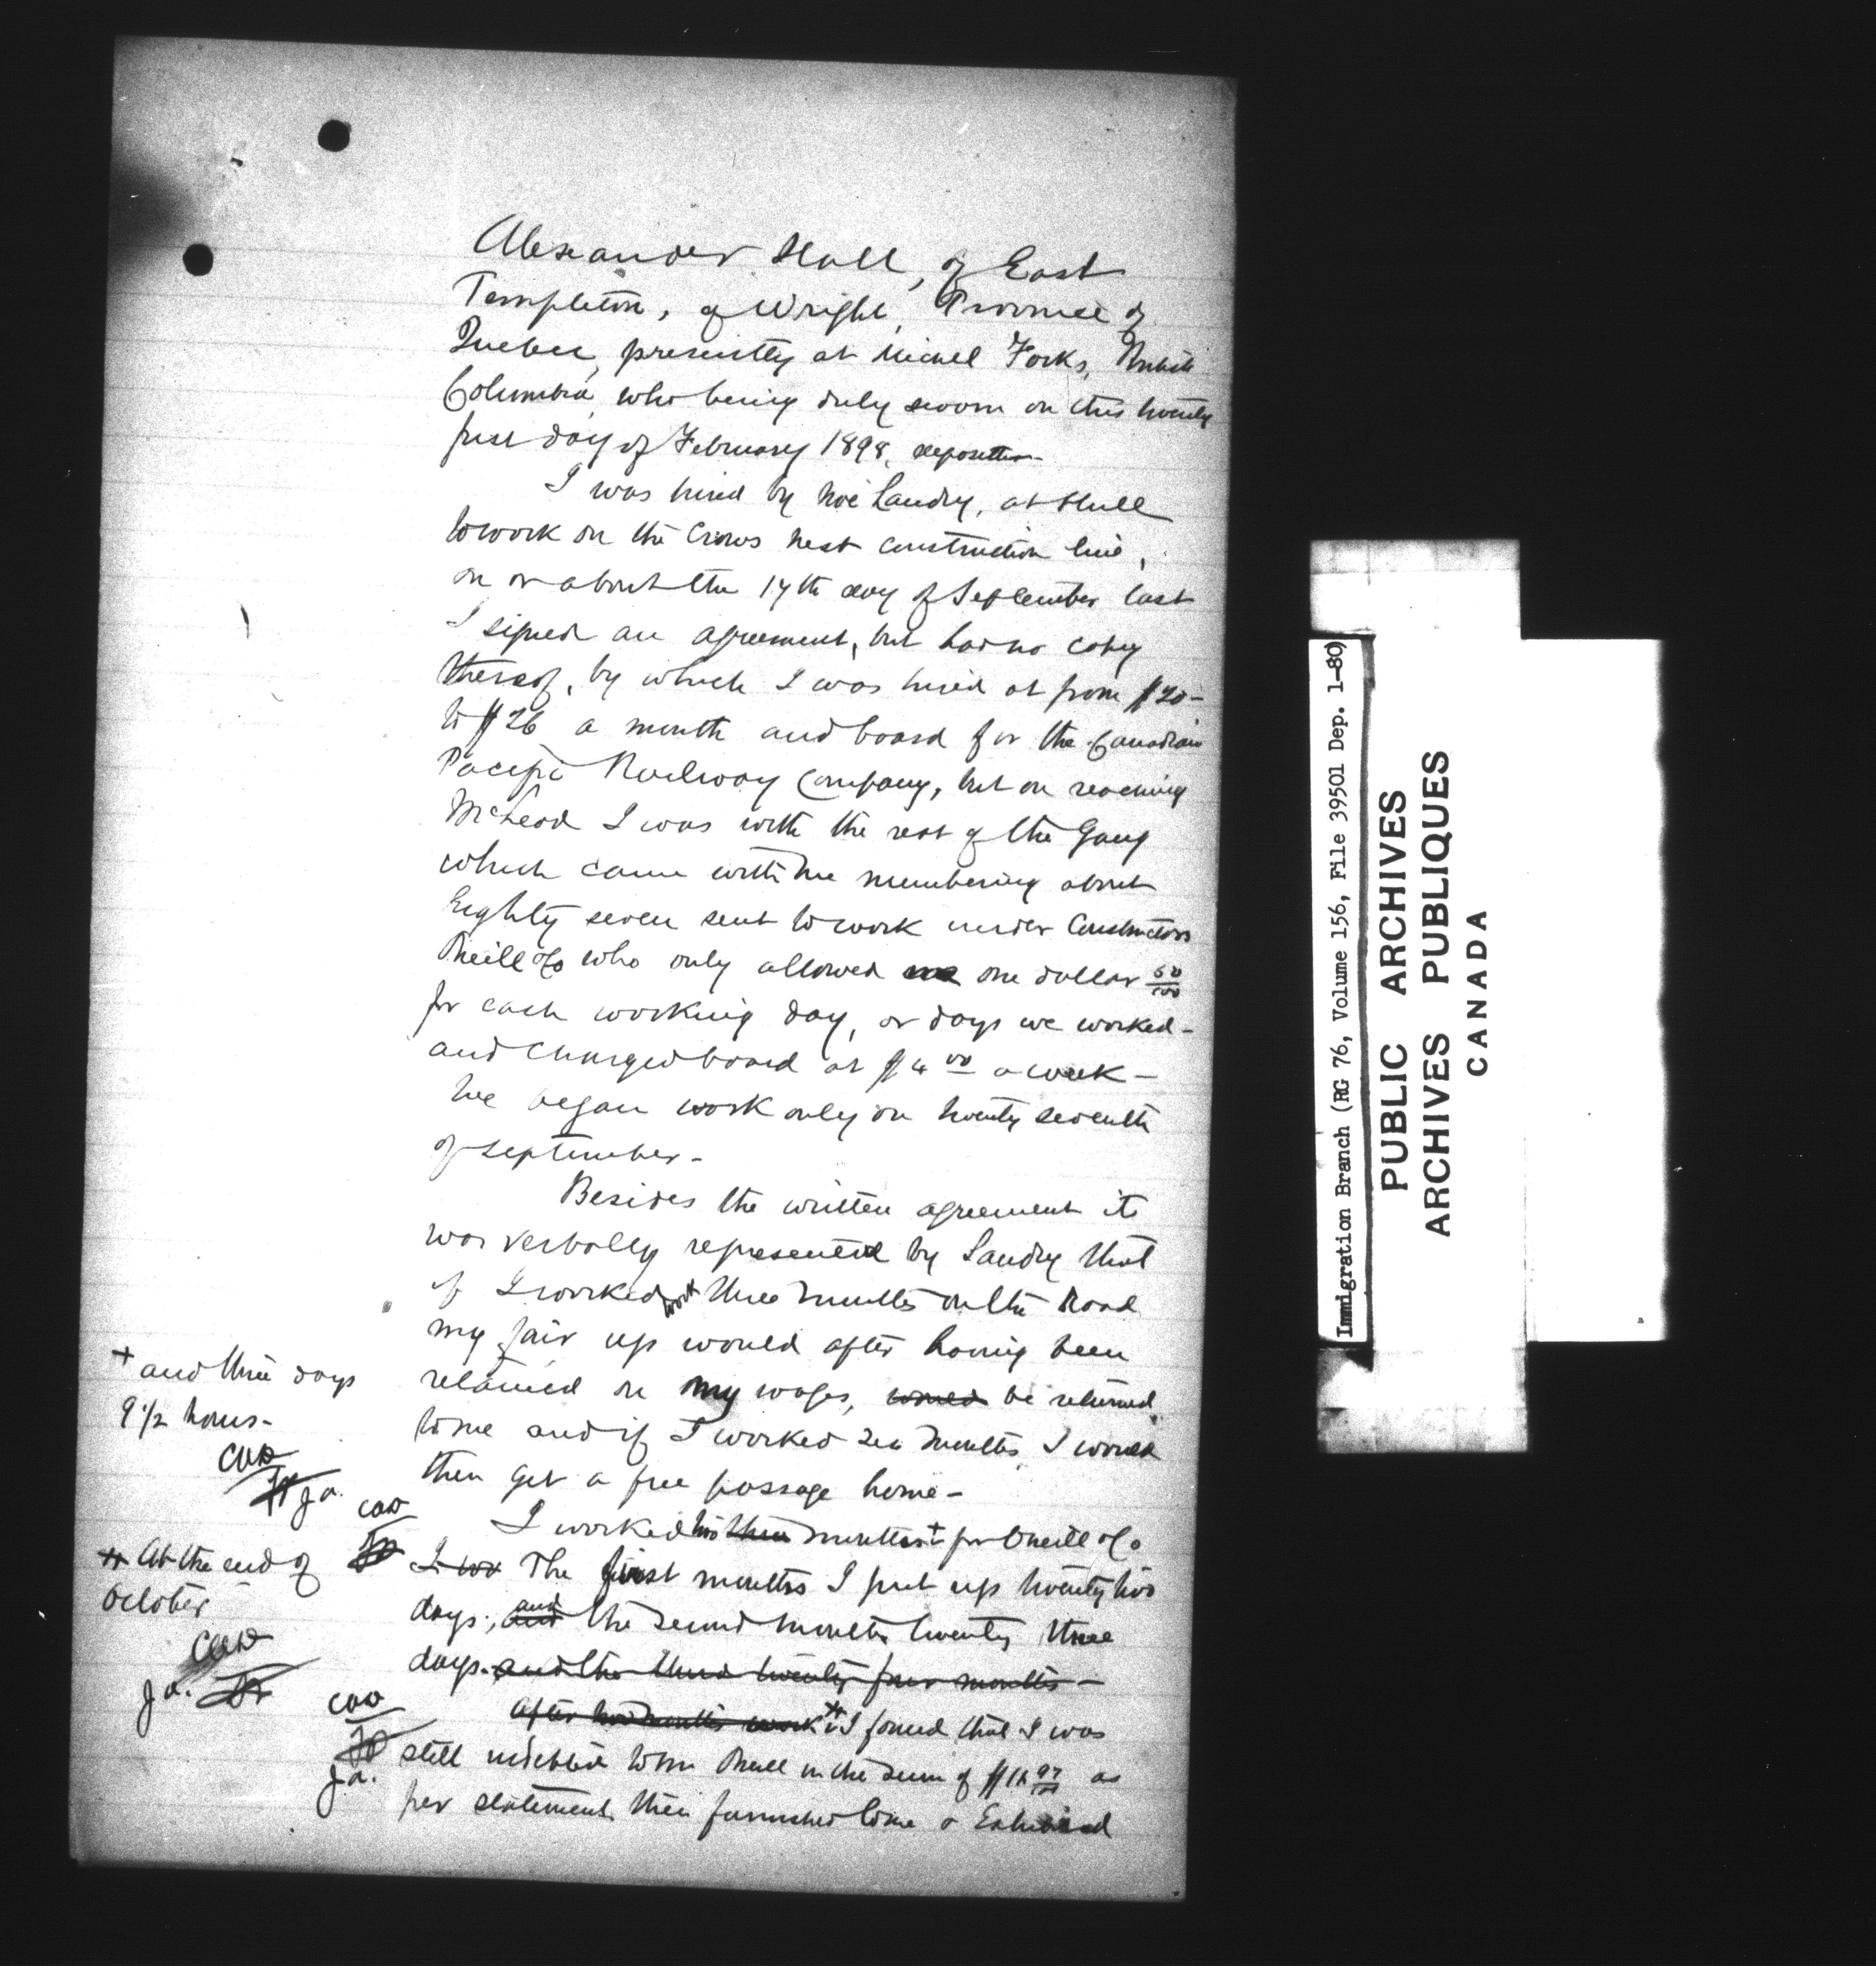 Alexander Hall, of East
Templeton, of Wright, Province of
Quebec, presently at Michel Forks, British
Columbia, who being duly sworn on this twenty
first day of February 1898,
I was hired by Noé Landry, at Hull
to work on the Crows nest construction line,
on or about the 17th day of September last
I signed an agreement, but had no copy
thereof, by which I was hired at from $20-
to $26 a month and board for the Canadian
Pacific Railway Company, but on reaching
McLeod I was with the rest of the Gang
which came with me numbering about
Eighty seven sent to work under Constructors
Oneill & Co who only allowed me one dollar 50/100
for each working day, or days we worked-
and charged board at $4 00 a week-
We began work only on twenty seventh
of September-
Besides the written agreement it
was verbally represented by Landry that
if I worked three months on the Road
my fair up would after having been
retained on my wages, would be returned
to me and if I worked six months, I would
then get a free passage home-
I worked two three months + for Oneill & Co
I was The first months I put up twenty two
days, and the second months twenty three
days. and the third twenty four months-
after two months work I found that I was
still indebted to Oneill in the sum of as
per statement then furnished to me &
+ and three days
9 1/2 hours-
CAD
J.A.
CAD
At the end of
October
CAD
J.A.
CAD
J.A.
Immigration Branch (RG 76, Volume 156, File 39501 Dep. 1-80)
PUBLIC ARCHIVES
ARCHIVES PUBLIQUES
CANADA